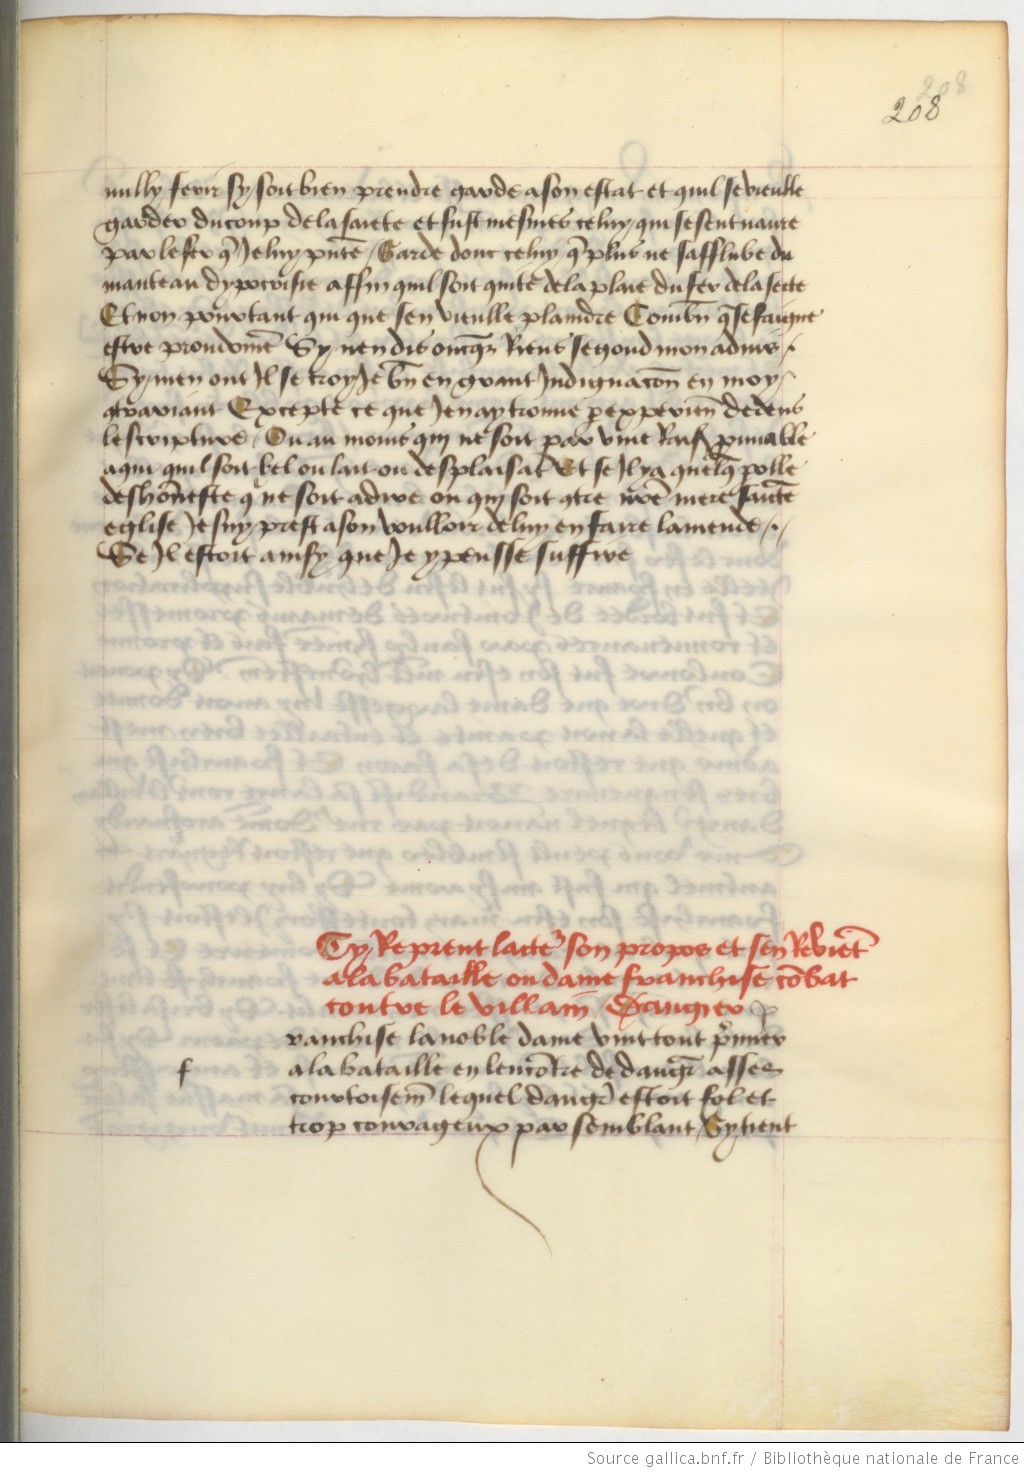 208
208
nully ferir sy soit bien prendre garde a son estat et quil se vieulle
garder du coup de la saiete et fust mesmes celuy qui se sent naure
par le fer q̄ Je luy pn̄te / Garde donc celuy q̄ plus ne safflube du
manteau dypocrisie affin quil soit quite de la plaie du fer de la secte
Et non pourtant qui que sen vieulle plaindre Combn̄ q̄ se faigne
estre proudom̄e Sy nen dis oncq̄s Riens segond mon aduis /.
Sy men ont Il se croy Je bn̄ en grant Indignacōn en moy /
9trariant Excepte ce que Jen ay trouue p experien̄ dedens
lescripture / Ou au moins qui ne soit par vne Rais̄ prouuable
a qui quil soit bel ou lait ou desplaisāt Et se Il y a quelq̄ polle
deshōneste q̄ ne soit a dire ou qui soit 9tre nr̄e mere saīte
eglise Je suy prest a son voulloir de luy en faire lamende /./
Se Il estoit ainsy que Je y peusse suffire
Cy Reprent lacteʳ son propos et sen Reviēt
a la bataille ou dame franchise cōbat
contre le villain / Dangier
f
ranchise la noble dame vint tout p̄mier
a la bataille en lencōtre de dangr̄ asses
courtoisem̄ lequel dangr̄ estoit fol et
trop courageux par semblant / Sy tient
Source gallica.bnf.fr / Bibliothèque nationale de France